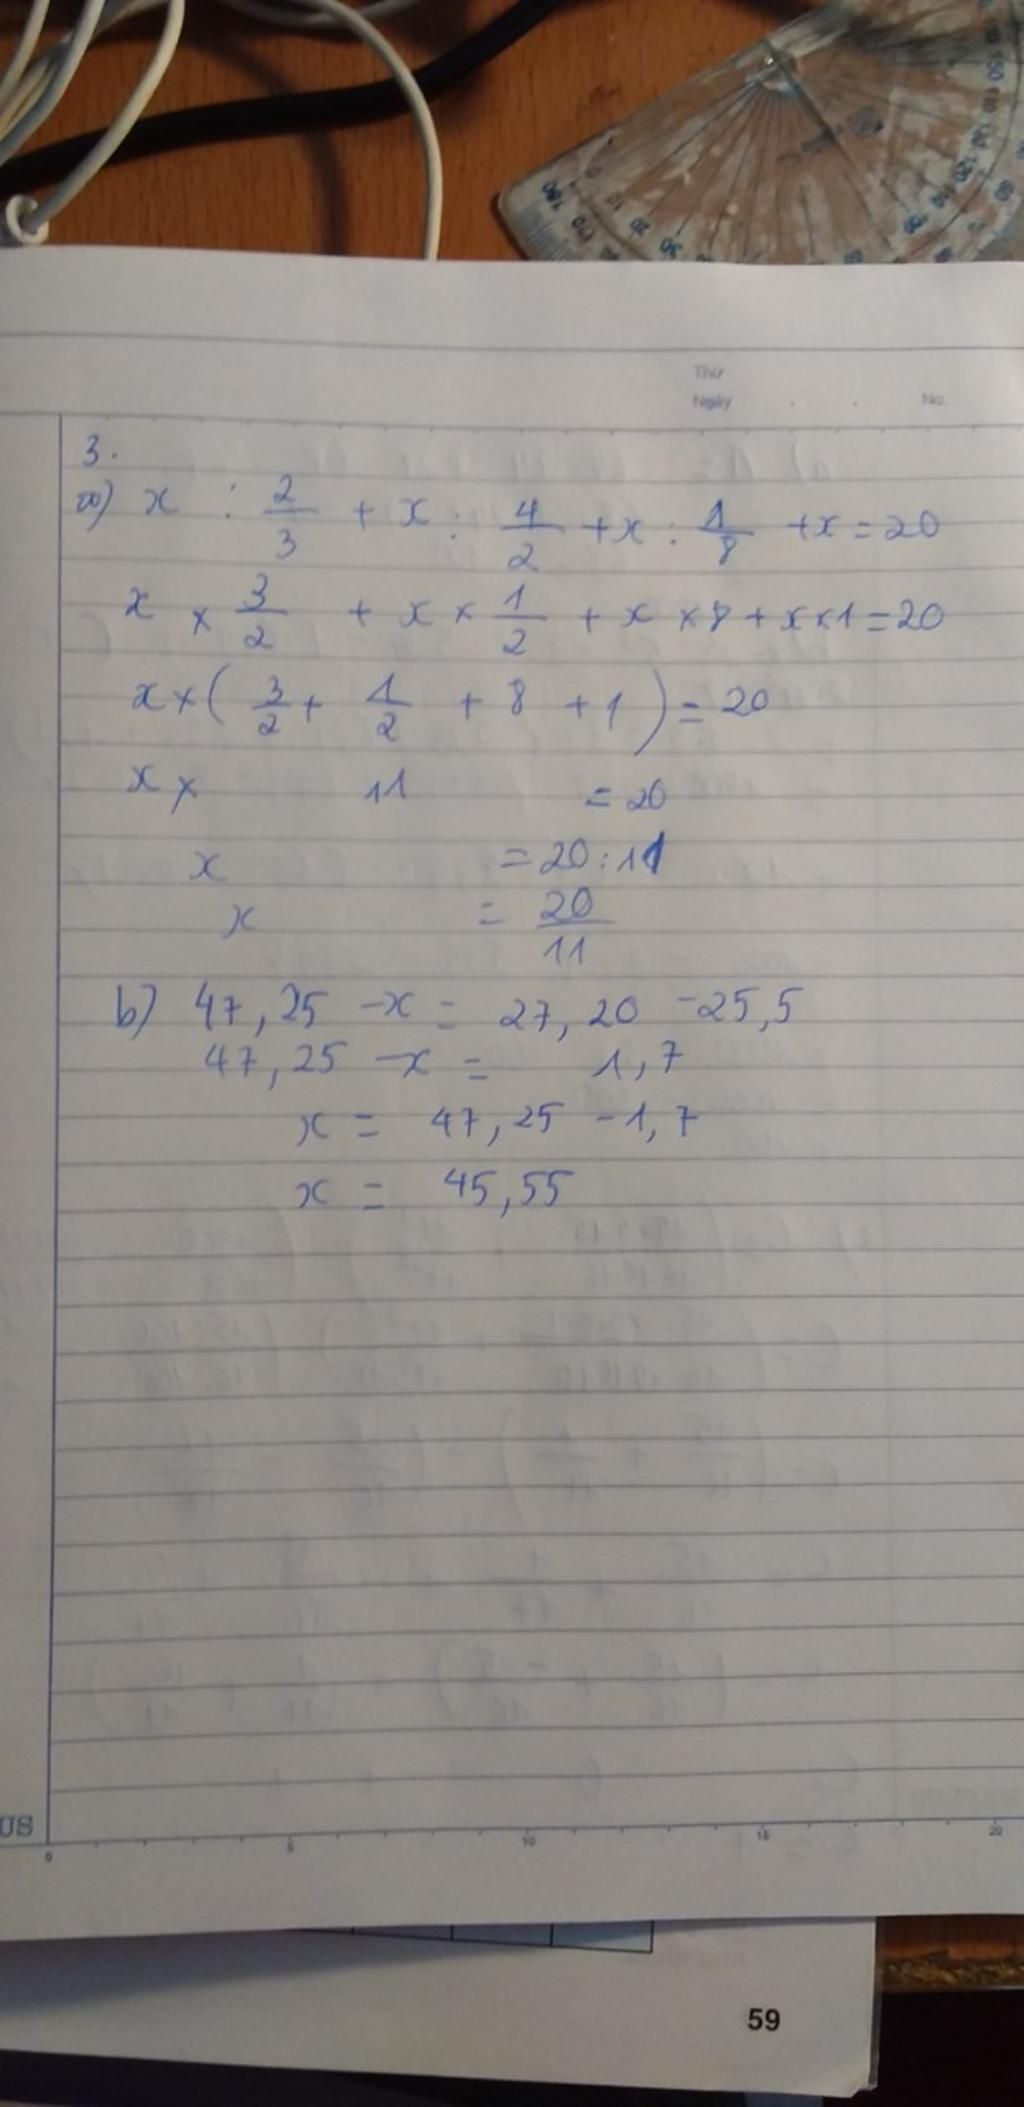 Thứ
Ngày . . No.
3.
a) x : 2/3 + x : 4/2 + x : 1/8 + x = 20
x × 3/2 + x × 1/2 + x × 8 + x × 1 = 20
x × ( 3/2 + 1/2 + 8 + 1 ) = 20
x × 11 = 20
x = 20 : 11
x = 20/11
b) 47,25 - x = 27,20 - 25,5
47,25 - x = 1,7
x = 47,25 - 1,7
x = 45,55
US
0 5 10 15 20
59